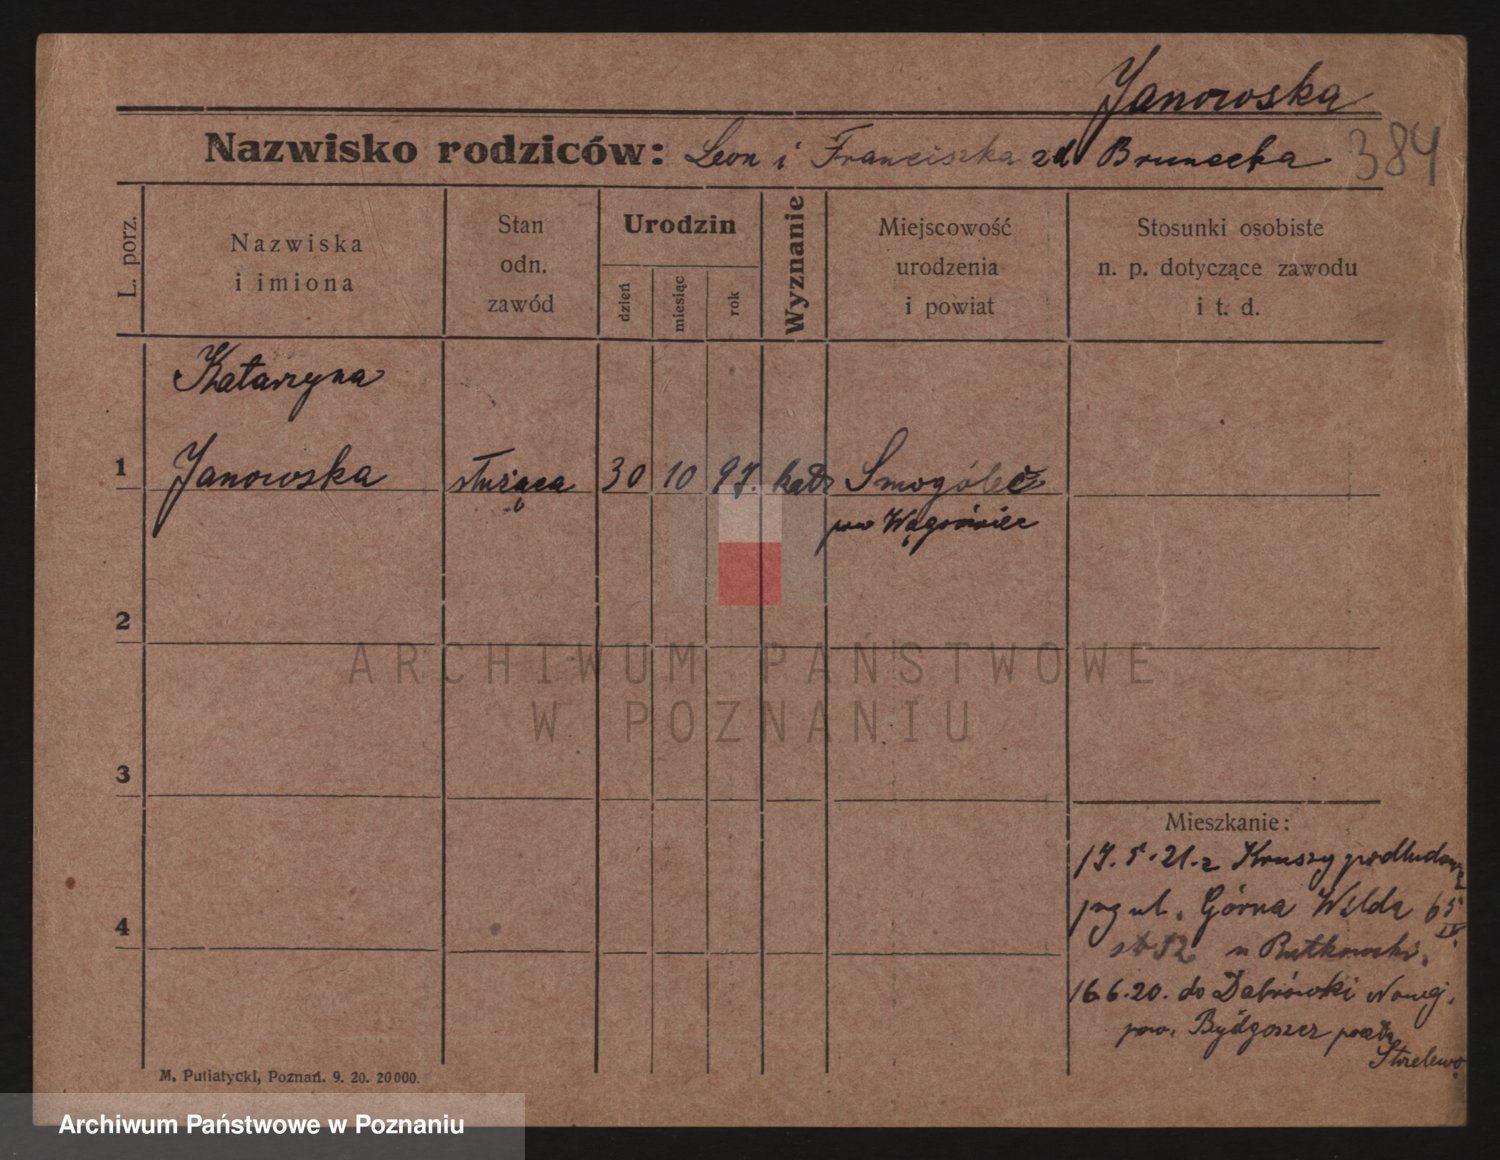 Janowska
Nazwisko rodziców: Leon i Franciszka zd Brunecka
384
L. porz.
Nazwiska
i imiona
Stan
odn.
zawód
Urodzin
dzień
miesiąc
rok
Wyznanie
Miejscowość
urodzenia
i powiat
Stosunki osobiste
n. p. dotyczące zawodu
i t. d.
Katarzyna
1 Janowska służąca 30 10 97. kat Smogólec
pow Wągrówiec
2
ARCHIWUM PAŃSTWOWE
W POZNANIU
3
Mieszkanie:
17.5.21. z Kruszy
4
ul. Górna Wilda 65
IV.
u Rutkowski.
16.6.20. do Dąbrówki Nowej.
pow. Bydgoszcz poczta
Strzelewo
M. Putiatycki, Poznań. 9. 20. 20000.
Archiwum Państwowe w Poznaniu